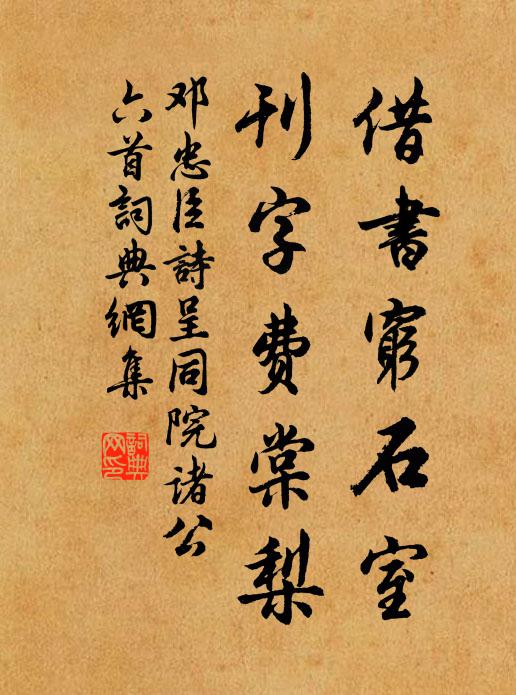 借書窮石室
刊字費棠梨
邓忠臣詩呈同院诸公
六首詞典網集
詞典网印